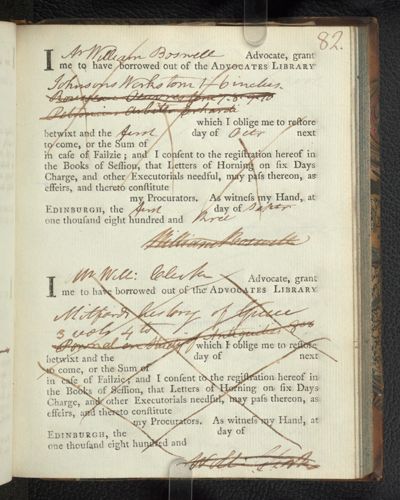 82.
I Mr William Boswell Advocate, grant
me to have borrowed out of the ADVOCATES LIBRARY
Johnsons
which I oblige me to restore
betwixt and the first day of Decr next
to come, or the Sum of
in case of Failzie; and I consent to the registration hereof in
the Books of Session, that Letters of Horning on six Days
Charge, and other Executorials needful, may pass thereon, as
effeirs, and thereto constitute
my Procurators. As witness my Hand, at
EDINBURGH, the first day of
one thousand eight hundred and three
William Boswell
I Mr Will: Clerk Advocate, grant
me to have borrowed out of the ADVOCATES LIBRARY
Mitfords history of Greece
3 vols 4to
which I oblige me to restore
betwixt and the day of next
to come, or the Sum of
in case of Failzie; and I consent to the registration hereof in
the Books of Session, that Letters of Horning on six Days
Charge, and other Executorials needful, may pass thereon, as
effeirs, and thereto constitute
my Procurators. As witness my Hand, at
EDINBURGH, the day of
one thousand eight hundred and
Will: Clerk